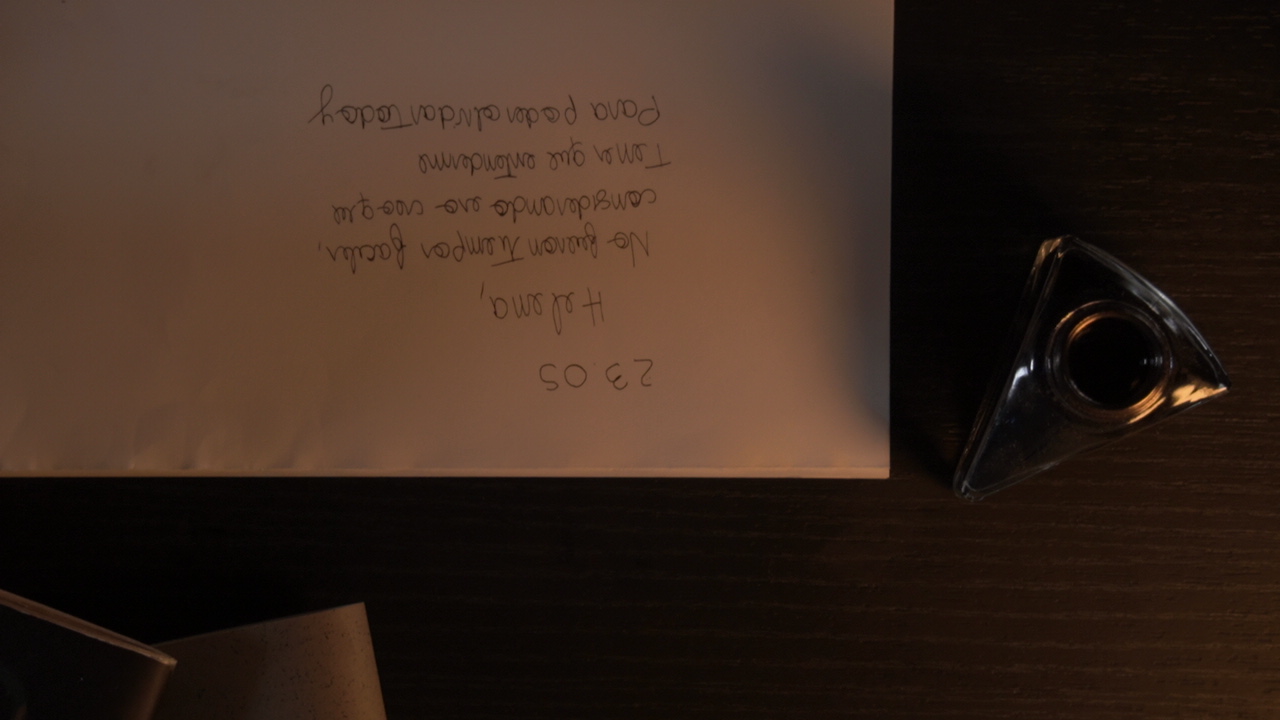 23.05
Helena,
No fueron tiempos faciles,
considerando eso creo que
Tenes que entenderme
Para poder olvidar todo y